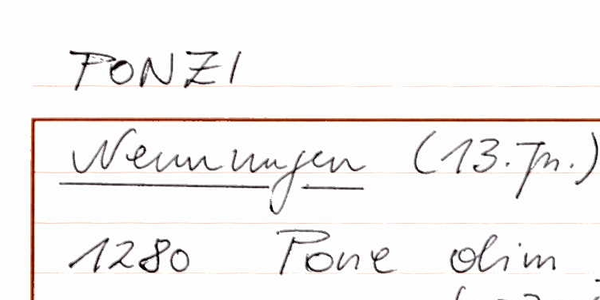 PONZI
Nennungen (13. Jh.)
1280 Pone olim